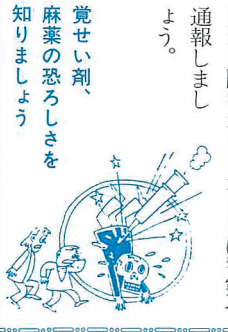 通報しまし
ょう。
覚せい剤、
麻薬の恐ろしさを
知りましょう